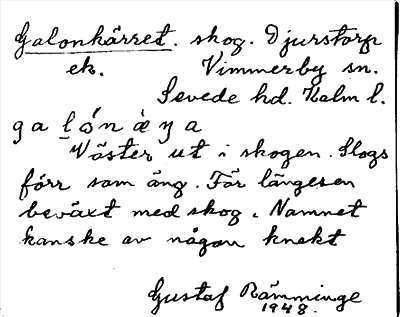 Galonkärret. skog. Djurstorp
ek. Vimmerby sn.
Sevede hd. Kalm l.
Väster ut i skogen. Slogs
förr som äng. För längesen
beväxt med skog. Namnet
kanske av någon knekt
Gustaf Rämminge
1948.